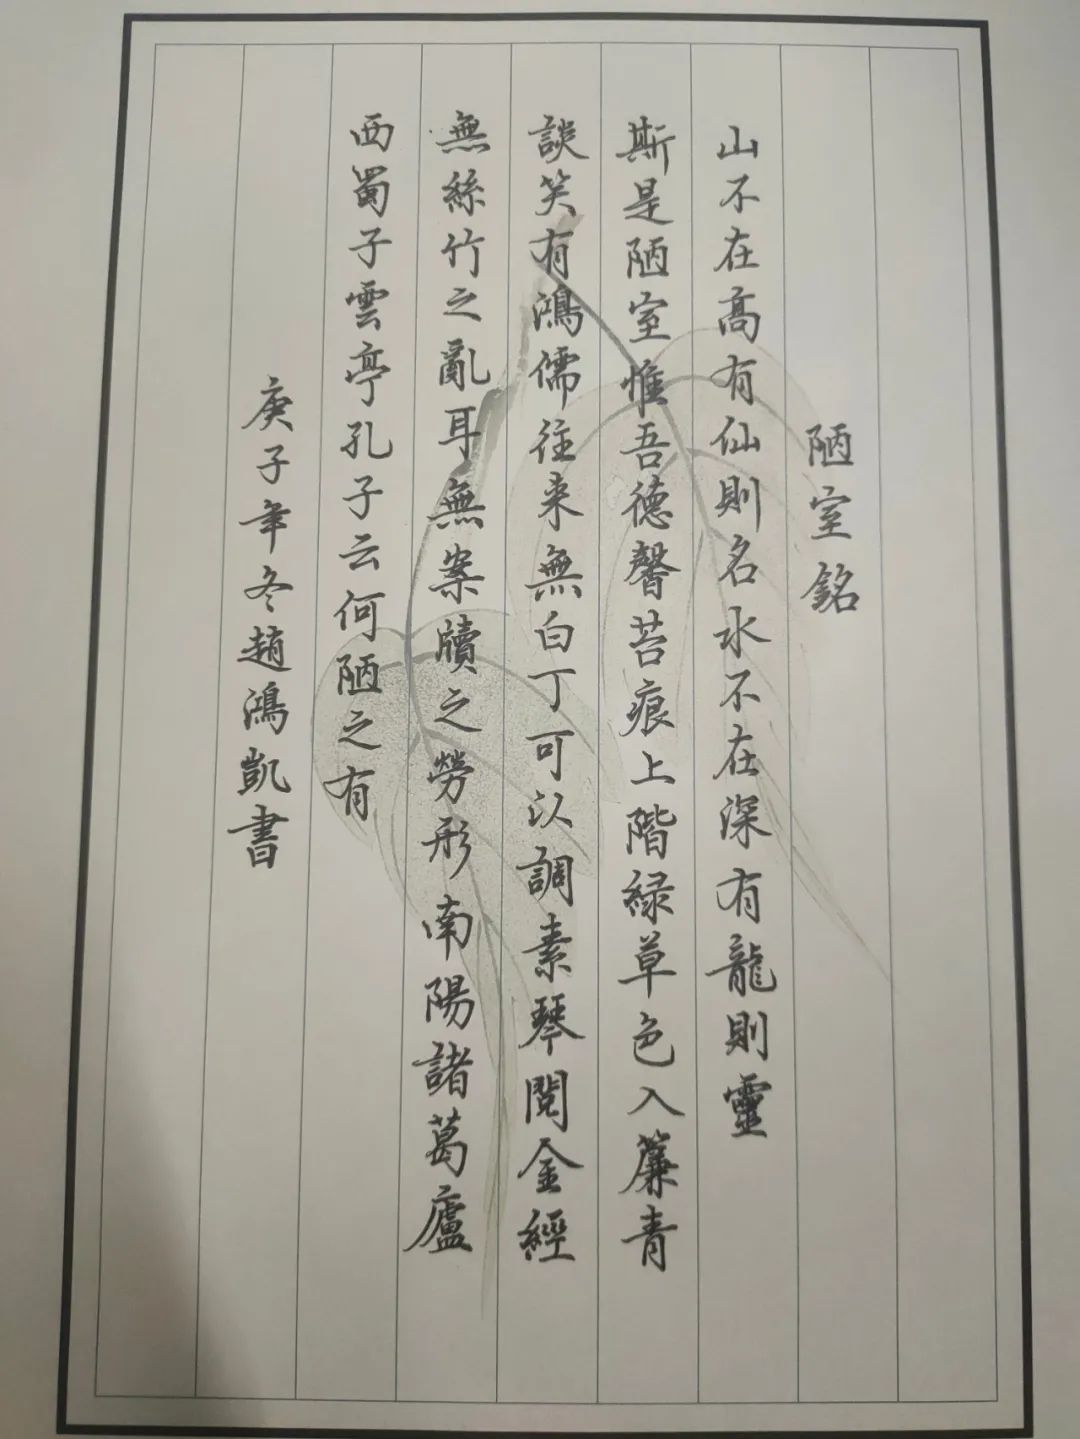 陋室銘
山不在高有仙則名水不在深有龍則靈
斯是陋室惟吾德馨苔痕上階緑草色入簾青
談笑有鴻儒往来無白丁可以調素琴閱金經
無絲竹之亂耳無案牘之勞形南陽諸葛廬
西蜀子雲亭孔子云何陋之有
庚子年冬趙鴻凱書